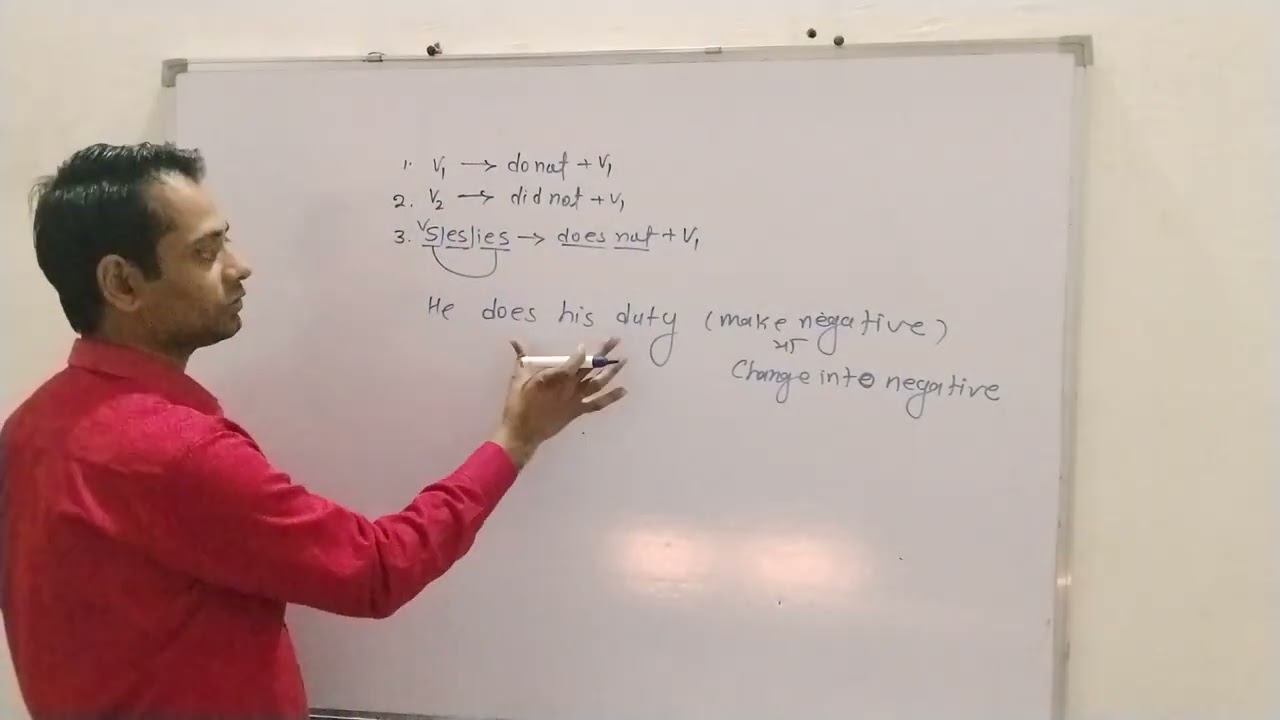 1. V₁ → do not + V₁
2. V₂ → did not + V₁
3. V s/es/ies → does not + V₁
He does his duty (make negative)
या
Change into negative